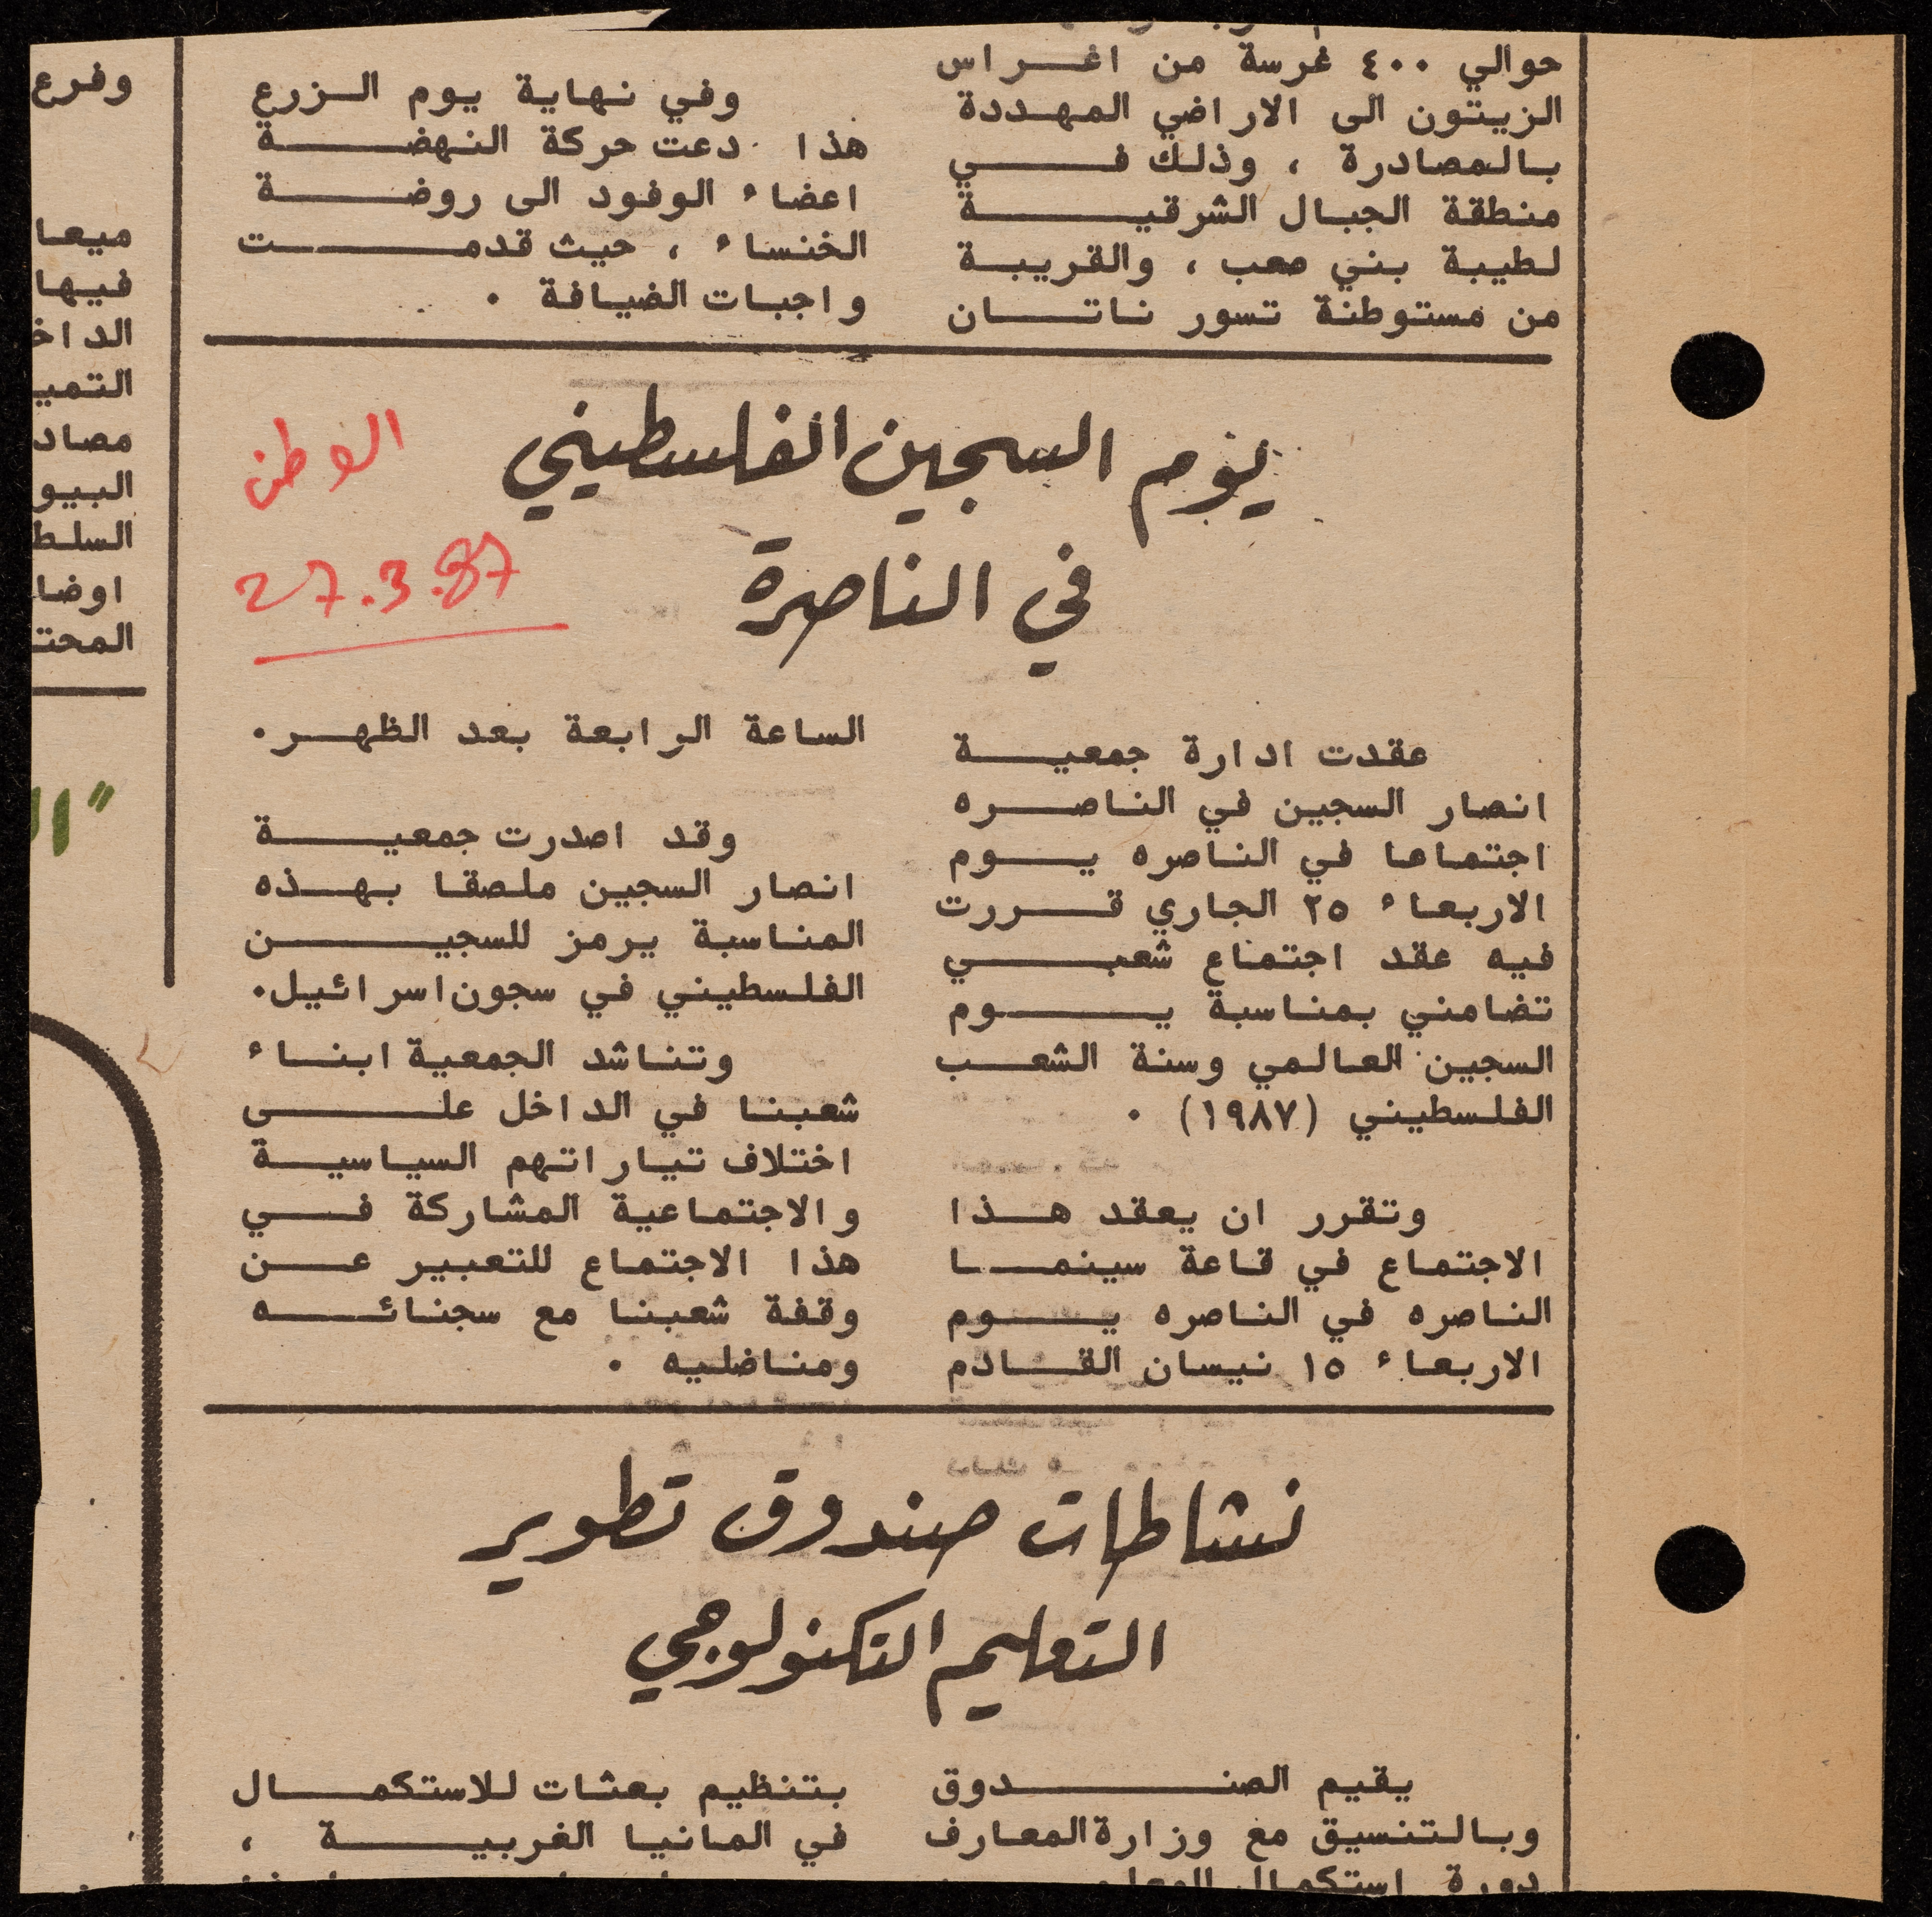 حوالي ٤٠٠ غرسة من اغراس
الزيتون الى الاراضي المهددة
بالمصادرة ، وذلك في
منطقة الجبال الشرقية
لطيبة بني صعب ، والقريبة
من مستوطنة تسور ناتان
وفي نهاية يوم الزرع
هذا دعت حركة النهضة
اعضاء الوفود الى روضة
الخنساء ، حيث قدمت
واجبات الضيافة .
يوم السجين الفلسطيني
في الناصرة
الوطن
27.3.87
عقدت ادارة جمعية
انصار السجين في الناصره
اجتماعا في الناصره يوم
الاربعاء ٢٥ الجاري قررت
فيه عقد اجتماع شعبي
تضامني بمناسبة يوم
السجين العالمي وسنة الشعب
الفلسطيني (١٩٨٧) .
وتقرر ان يعقد هذا
الاجتماع في قاعة سينما
الناصره في الناصره يوم
الاربعاء ١٥ نيسان القادم
الساعة الرابعة بعد الظهر.
وقد اصدرت جمعية
انصار السجين ملصقا بهذه
المناسبة يرمز للسجين
الفلسطيني في سجون اسرائيل.
وتناشد الجمعية ابناء
شعبنا في الداخل على
اختلاف تياراتهم السياسية
والاجتماعية المشاركة في
هذا الاجتماع للتعبير عن
وقفة شعبنا مع سجنائه
ومناضليه .
نشاطات صندوق تطوير
التعليم التكنولوجي
يقيم الصندوق
وبالتنسيق مع وزارة المعارف
دورة استكمال
بتنظيم بعثات للاستكمال
في المانيا الغربية ،
وفرع
ميعا
فيها
الداخ
التمي
مصاد
البيو
السلط
اوضا
المحت